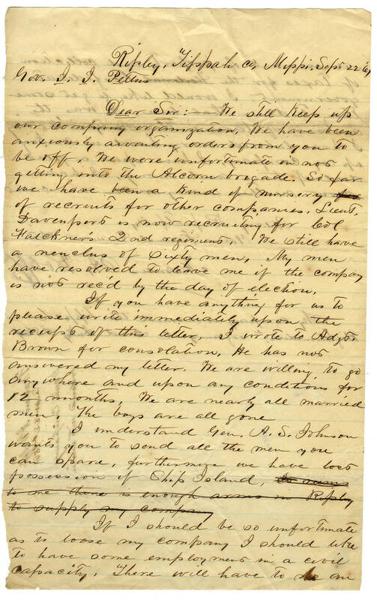 Ripley, Tippah Co, Missppi, Sept 22 61
Gov. J. J. Pettus
Dear Sir: We still keep up
our company organization, We have been
anxiously awaiting orders from you to
be off. We were unfortunate in not
getting into the Alcorn brigade. So far
we have been a kind of nursery for
of recruits for other companies. Lieut.
Davenport is now recruiting for Col
Falckner's 2nd regiment. We still have
a neuclus of sixty men. My men
have resolved to leave me if the company
is not recd by the day of election.
If you have anything for us to
please write immediately upon the
receipt of this letter, I wrote to Adjt.
Brown for consolation, He has not
answered my letter. We are willing to go
anywhere and upon any conditions for
12 months, We are nearly all married
men. The boys are all gone
I understand Gen. A. S. Johnson
wants you to send all the men you
can spare, furthermore we have lost
possession of Ship Island,
to me there is enough arms in Ripley
to supply my company
If I should be so unfortunate
as to loose my company I should like
to have some employment in a civil
capacity, There will have to be an